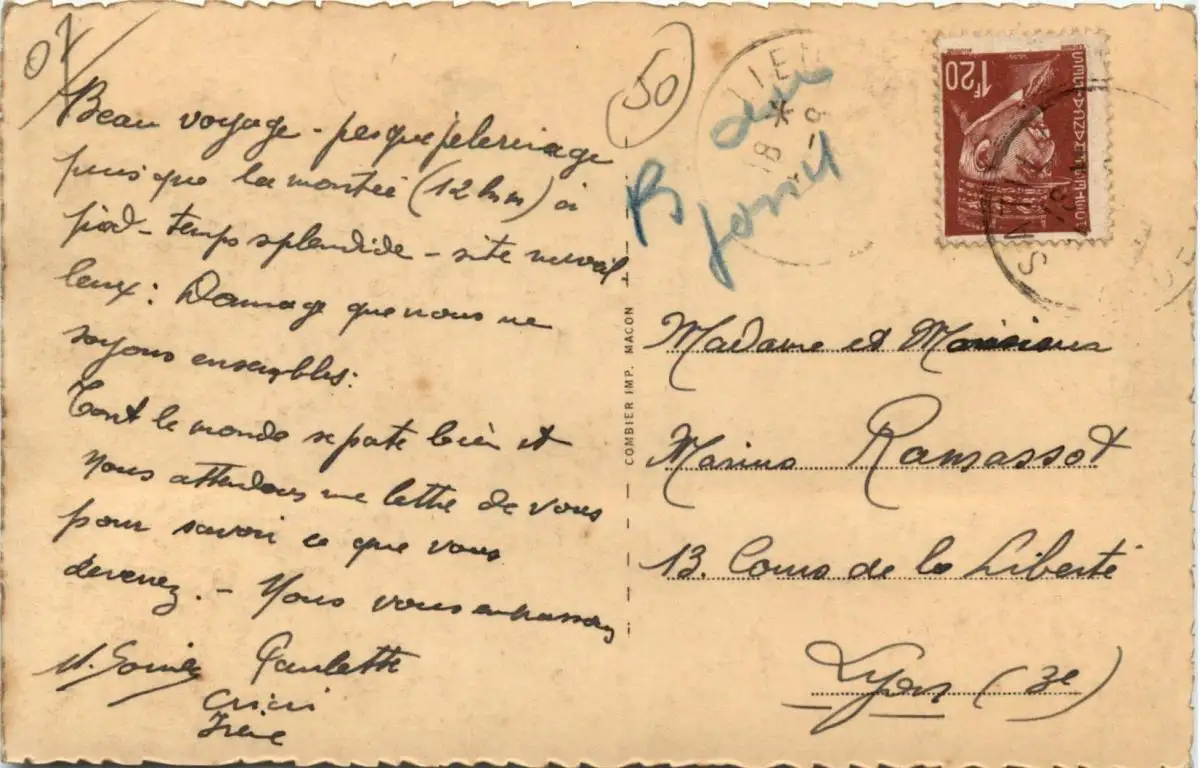 07
Beau voyage - presque pèlerinage
puisque la montée (12 km) à
pied - temps splendide - site merveil
leux : Dommage que nous ne
soyons ensembles :
Tout le monde se porte bien et
nous attendons une lettre de vous
pour savoir ce que vous
devenez. - Nous vous embrassons
Paulette
Cricri
Irène
50
18
1F20
COMBIER IMP. MACON
Madame et Monsieur
Marius Ramassot
13. Cours de la Liberté
Lyon (3e)